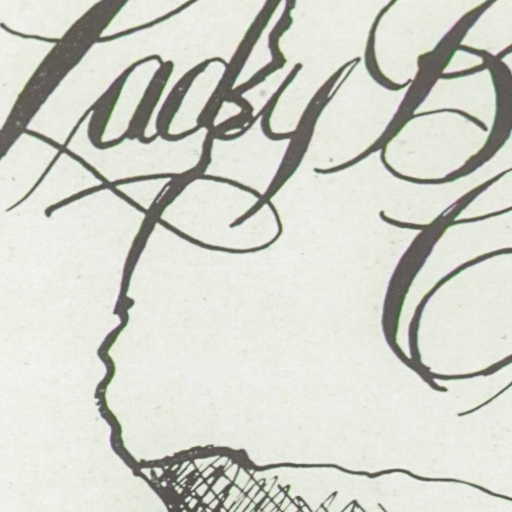 Lady B
C